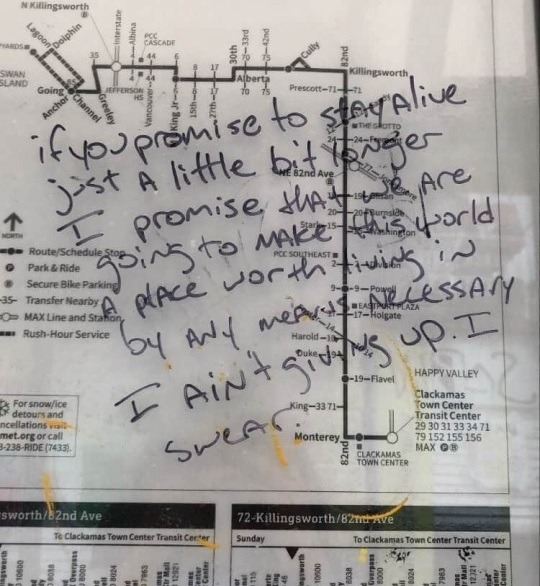 N Killingsworth
Interstate
Albina
PCC
CASCADE
33rd
42nd
Dolphin
Lagoon
YARDS
SWAN
ISLAND
Going
Anchor
Channel
Greeley
35
4
44
6
8
17
30th
70
75
Cully
82nd
JEFFERSON
HS
Vancouver
King Jr
15th
27th
Alberta
Killingsworth
Prescott-71
71
if you promise to stay Alive
just A little bit longer
I promise that we Are
going to make this world
A plAce worth living in
by Any means Necessary
I Ain't giving up. I
swear.
THE GROTTO
24
24-Fremont
NE 82nd Ave
77
19
20
20-Burnside
Stark-15
Washington
PCC SOUTHEAST
2
Division
9
9-Powell
EASTPORT PLAZA
17
17-Holgate
Harold-10
Duke-19
14
19-Flavel
King-33 71
Monterey
82nd
HAPPY VALLEY
Clackamas
Town Center
Transit Center
29 30 31 33 34 71
79 152 155 156
MAX P B
CLACKAMAS
TOWN CENTER
NORTH
Route/Schedule Stop
P Park & Ride
B Secure Bike Parking
-35- Transfer Nearby
MAX Line and Station
Rush-Hour Service
For snow/ice
detours and
ncellations visit
met.org or call
3-238-RIDE (7433).
sworth/82nd Ave
To Clackamas Town Center Transit Center
72-Killingsworth/82nd Ave
Sunday
To Clackamas Town Center Transit Center